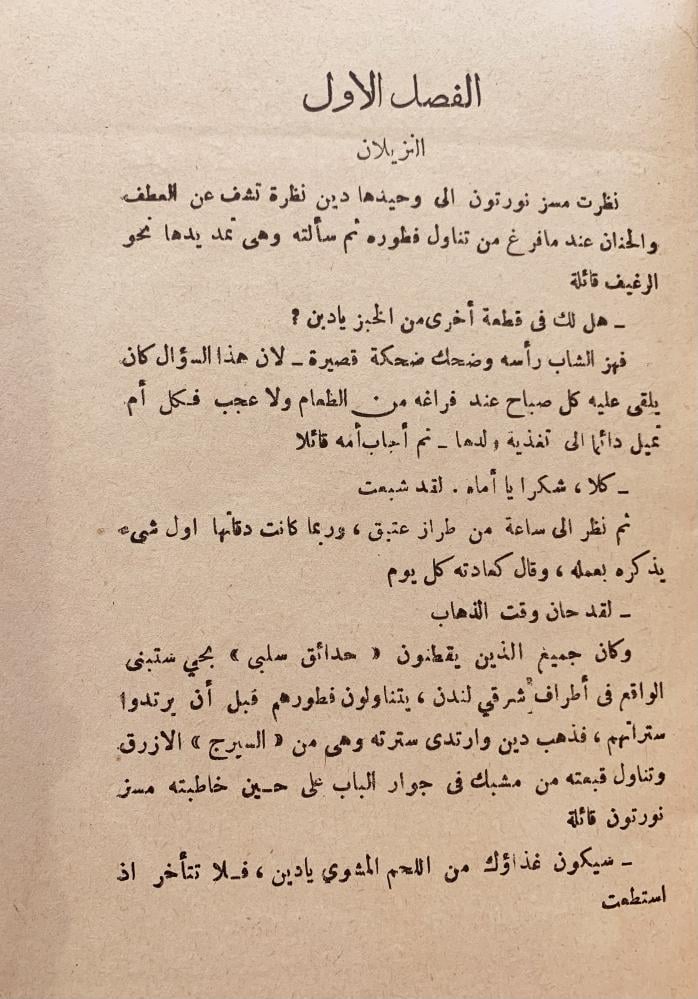 الفصل الاول
النزيلان
نظرت مسز نورتون الى وحيدها دين نظرة تشف عن العطف
والحنان عند مافرغ من تناول فطوره ثم سألته وهى تمد يدها نحو
الرغيف قائلة
ـ هل لك فى قطعة أخرى من الخبز يادين ؟
فهز الشاب رأسه وضحك ضحكة قصيرة ـ لان هذا السؤال كان
يلقى عليه كل صباح عند فراغه من الطعام ولا عجب فكل أم
تميل دائما الى تغذية ولدها ـ ثم أجاب أمه قائلا
ـ كلا ، شكرا يا أماه . لقد شبعت
ثم نظر الى ساعة من طراز عتيق ، وربما كانت دقاتها اول شىء
يذكره بعمله ، وقال كعادته كل يوم
ـ لقد حان وقت الذهاب
وكان جميع الذين يقطنون « حدائق سلبى » بحي ستبنى
الواقع فى أطراف شرقي لندن ، يتناولون فطورهم قبل أن يرتدوا
ستراتهم ، فذهب دين وارتدى سترته وهى من « السيرج » الازرق
وتناول قبعته من مشبك فى جوار الباب على حين خاطبته مسز
نورتون قائلة
ـ سيكون غذاؤك من اللحم المشوي يادين ، فلا تتأخر اذ
استطعت